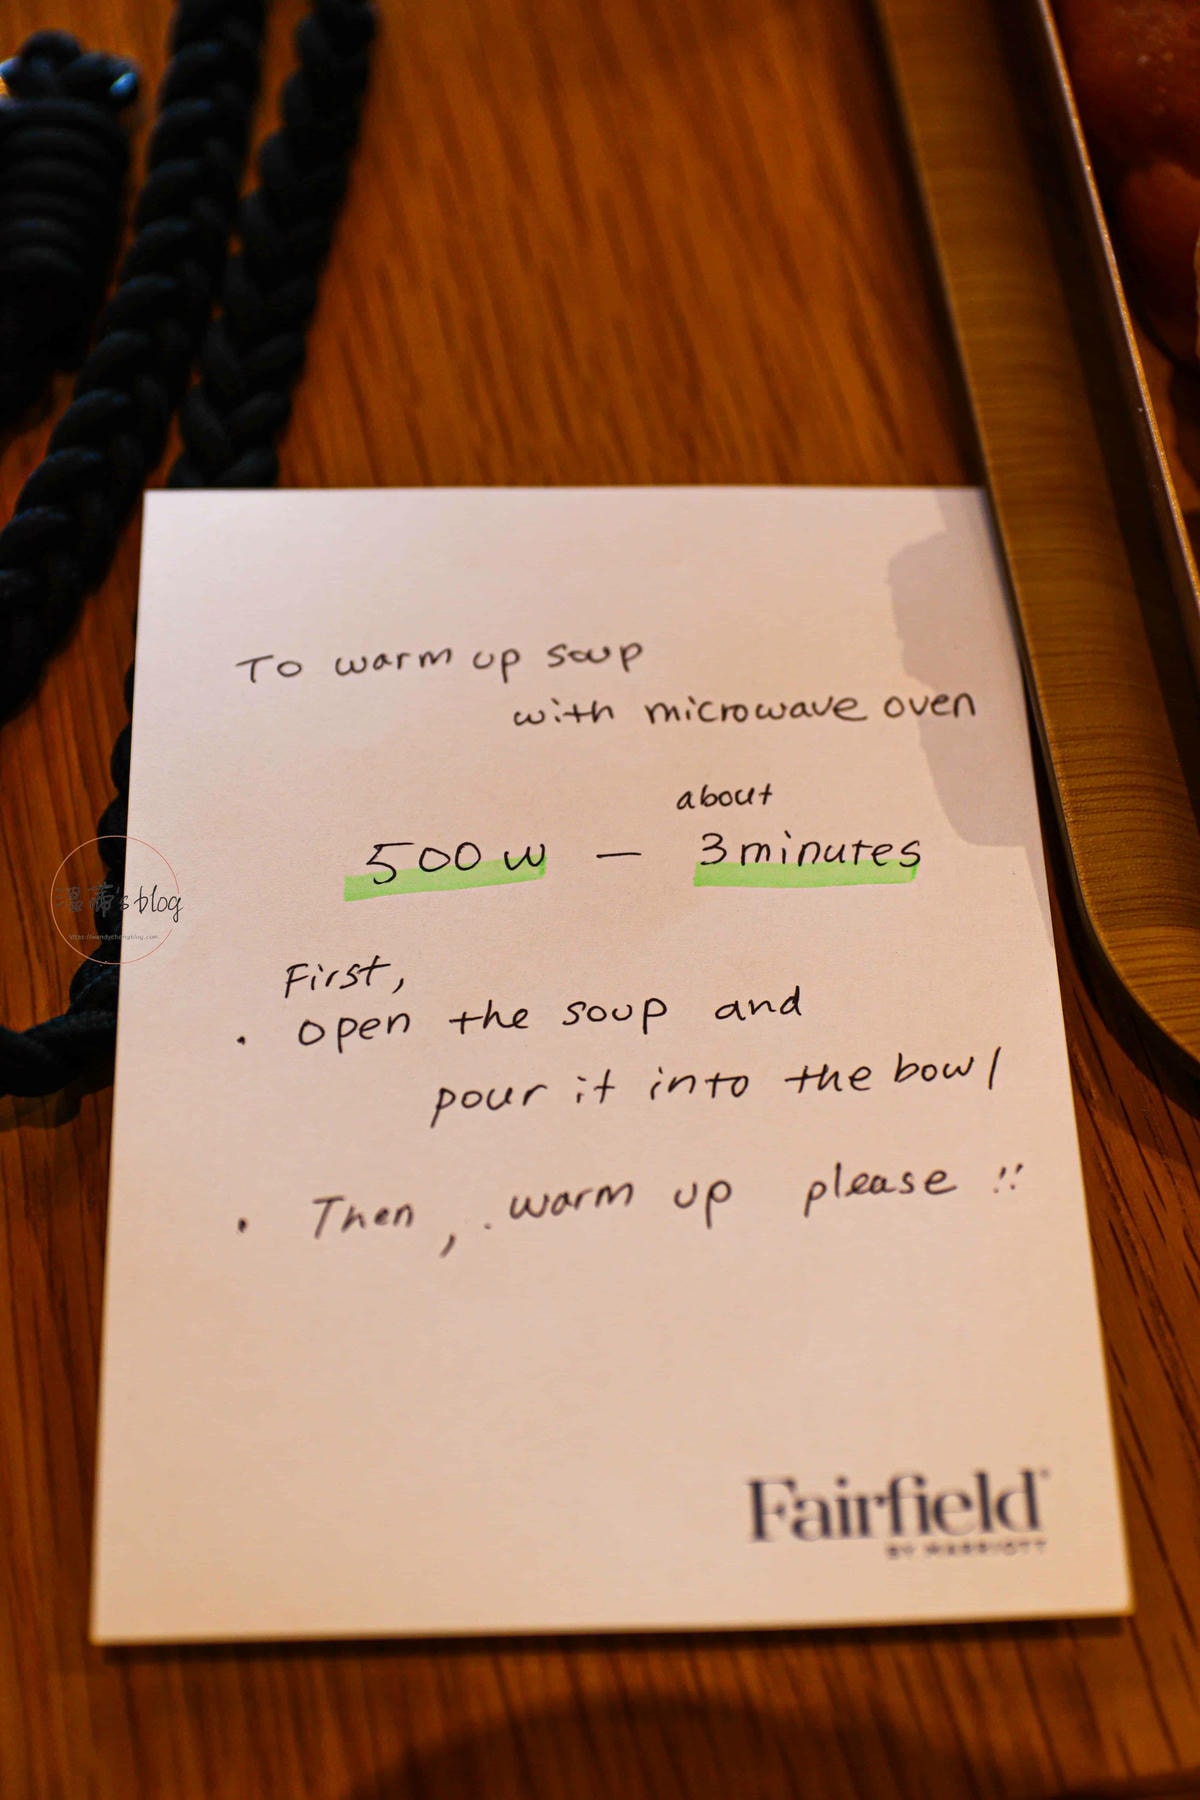 To warm up soup
with microwave oven
about
500w — 3minutes
First,
· open the soup and
pour it into the bowl
· Then, warm up please !!
Fairfield
BY MARRIOTT
's blog